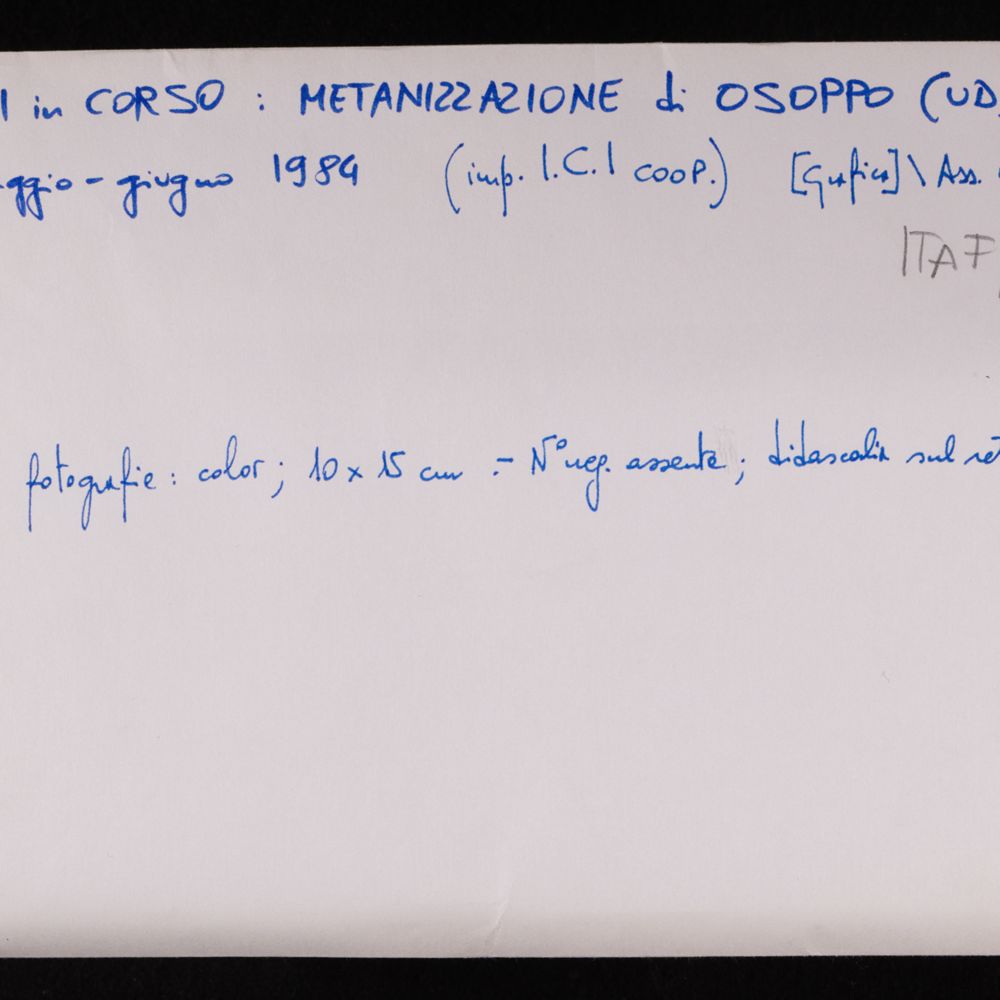 I in CORSO : METANIZZAZIONE di OSOPPO (UD
ggio - giugno 1984 (imp. I.C.I COOP.) [Grafica] \ Ass.
ITAF
fotografie : color ; 10 x 15 cm .- N° neg. assente ; didascalia sul ret